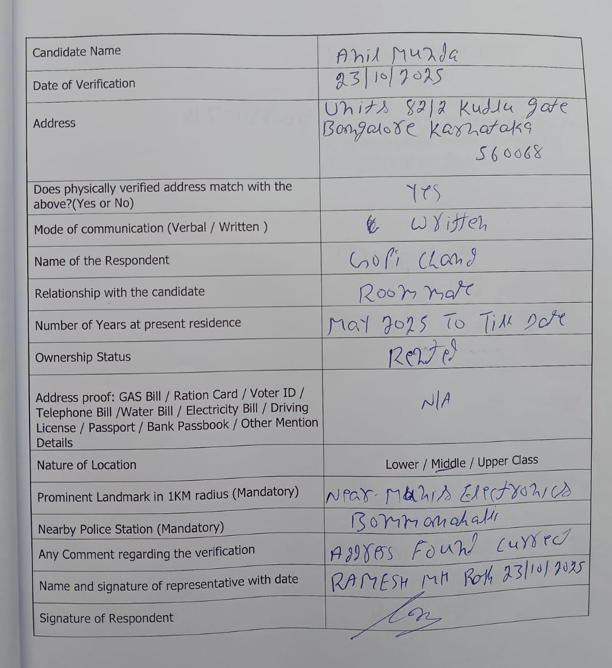 Candidate Name Anil Munda
Date of Verification 23/10/2025
Address Units 82/2 Kudlu gate
Bangalore Karnataka
560068
Does physically verified address match with the
above?(Yes or No) Yes
Mode of communication (Verbal / Written ) Written
Name of the Respondent Gopi Chand
Relationship with the candidate Room mate
Number of Years at present residence May 2025 To Till Date
Ownership Status Rented
Address proof: GAS Bill / Ration Card / Voter ID /
Telephone Bill /Water Bill / Electricity Bill / Driving
License / Passport / Bank Passbook / Other Mention
Details N/A
Nature of Location Lower / Middle / Upper Class
Prominent Landmark in 1KM radius (Mandatory) Near Electronics
Nearby Police Station (Mandatory)
Any Comment regarding the verification Address Found
Name and signature of representative with date RAMESH MH 23/10/2025
Signature of Respondent